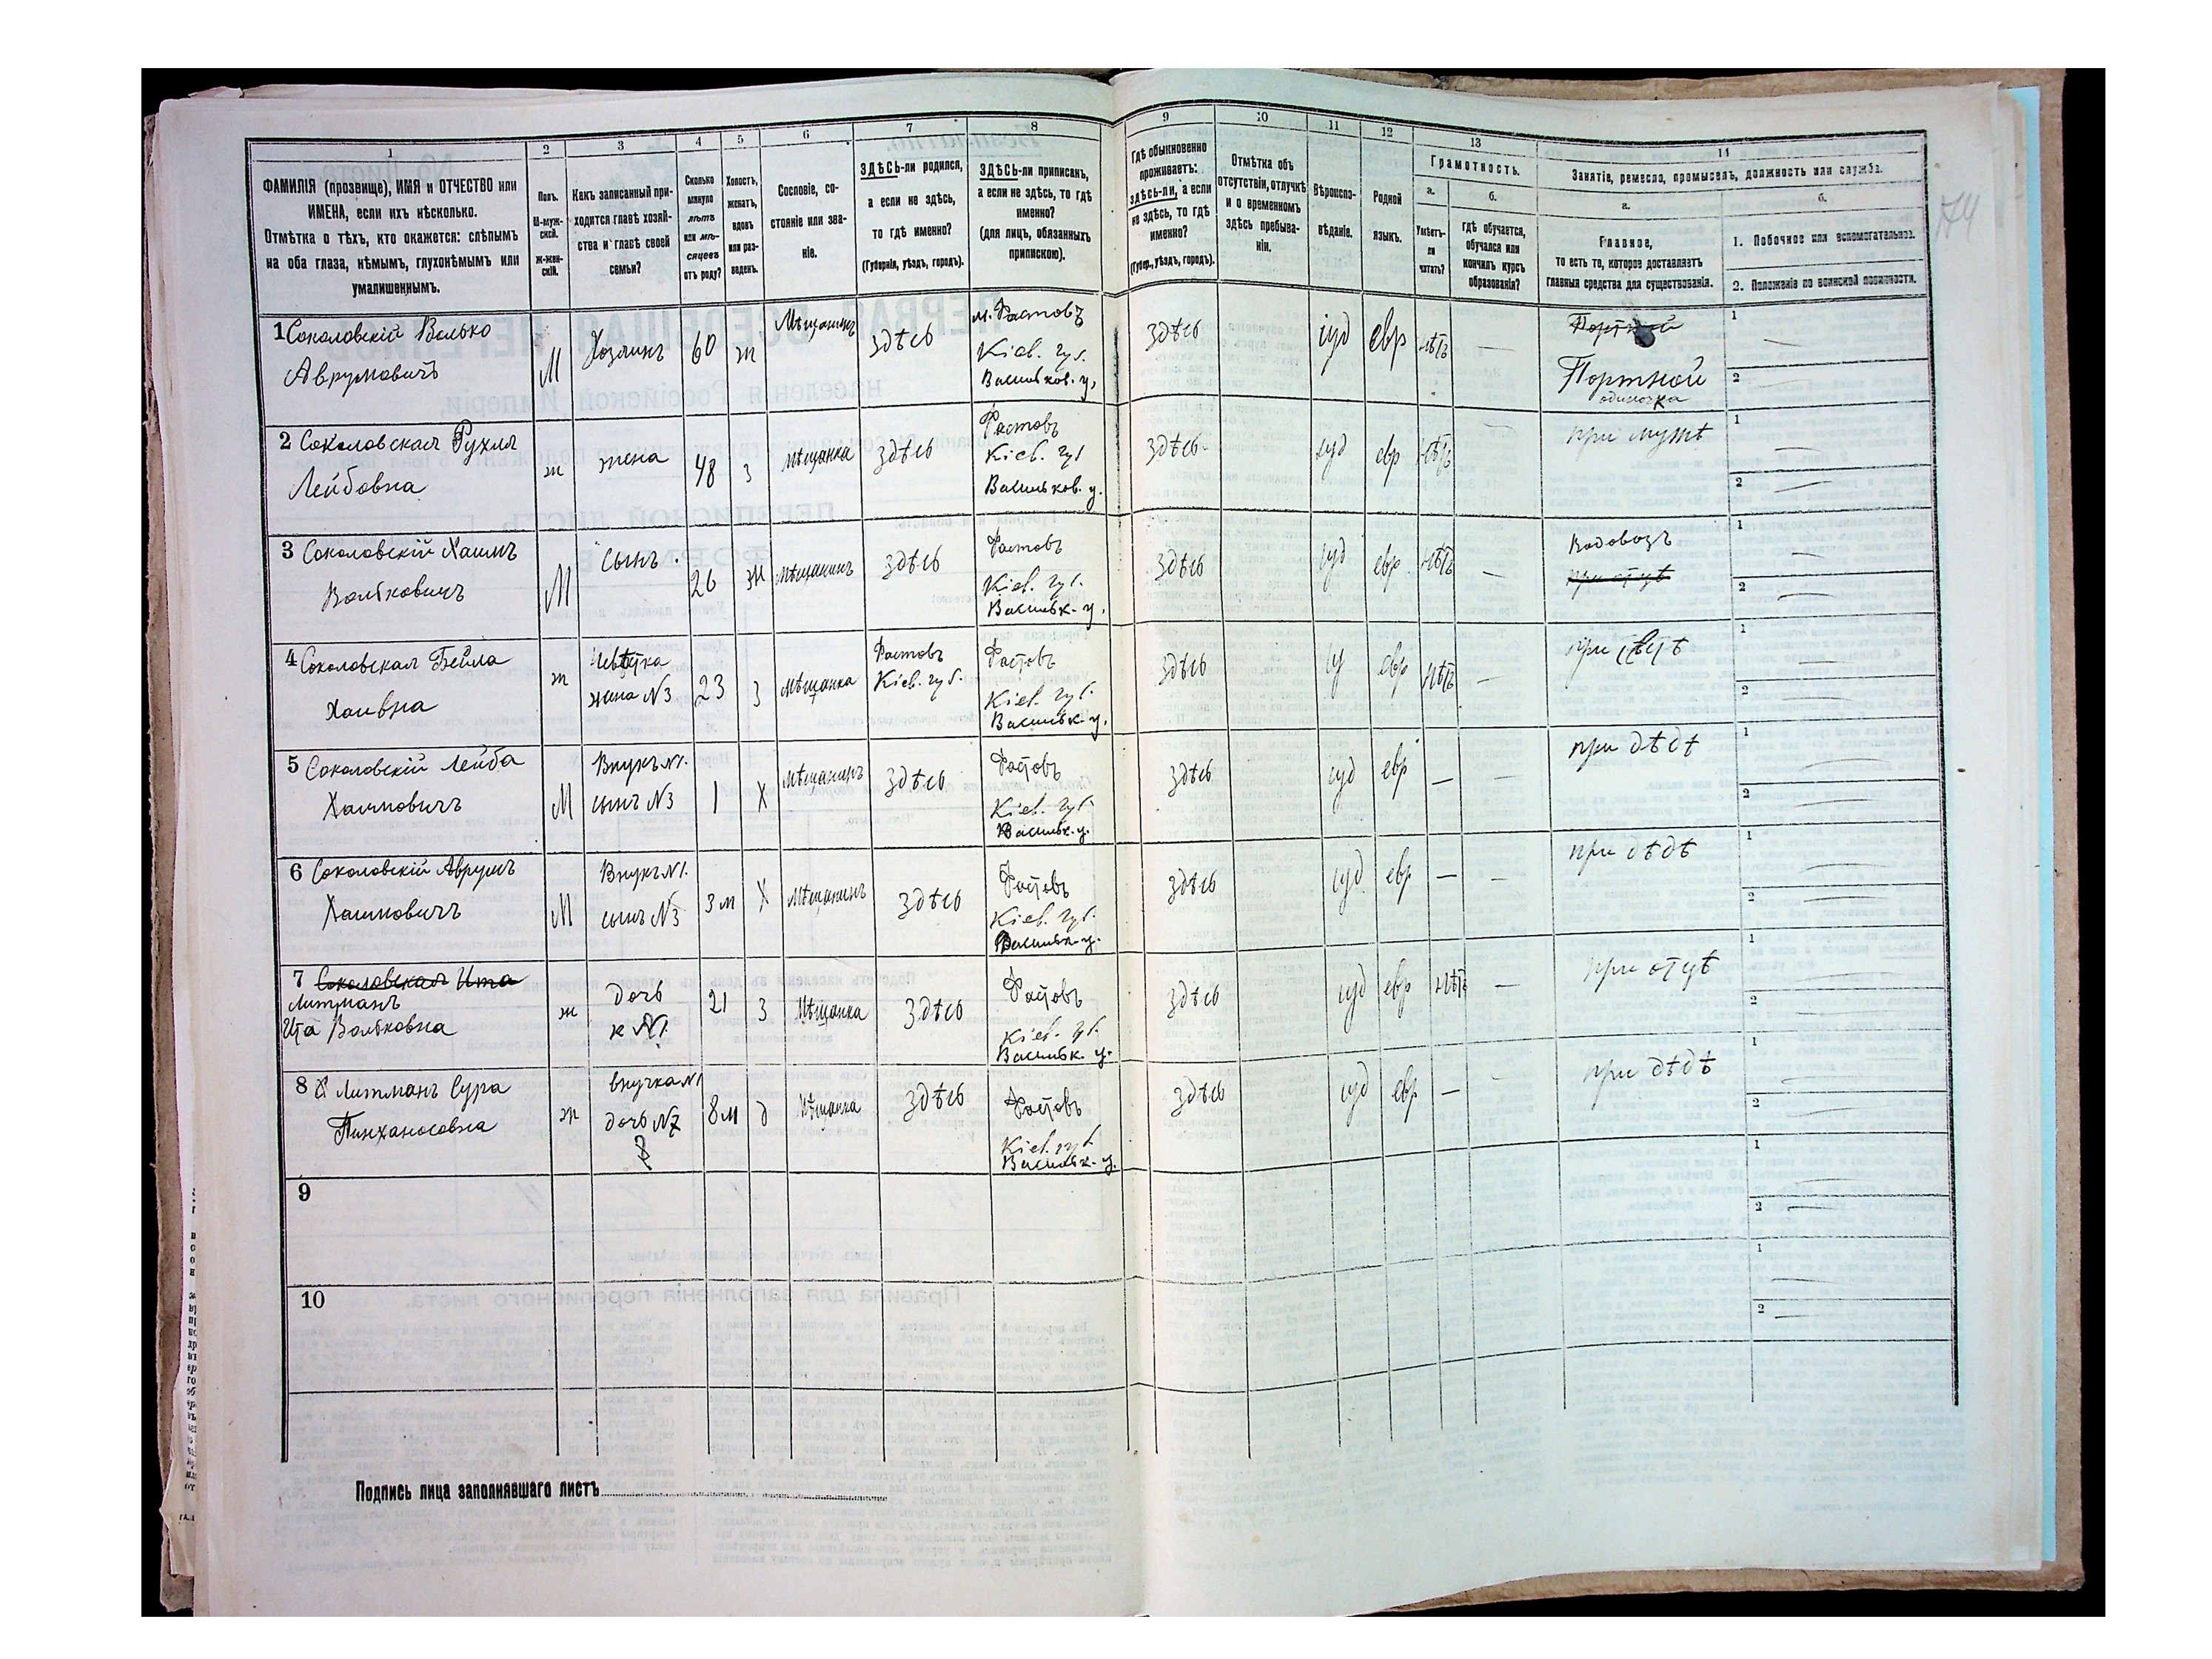 1 2 3 4 5 6 7 8 9 10 11 12 13 14
ФАМИЛІЯ (прозвище), ИМЯ и ОТЧЕСТВО или
ИМЕНА, если ихъ нѣсколько.
Отмѣтка о тѣхъ, кто окажется: слѣпымъ
на оба глаза, нѣмымъ, глухонѣмымъ или
умалишеннымъ.
Полъ.
М-муж-
ской.
ж-жен-
скій.
Какъ записанный при-
ходится главѣ хозяй-
ства и главѣ своей
семьи?
Сколько
минуло
лѣтъ
или мѣ-
сяцевъ
отъ роду?
Холостъ,
женатъ,
вдовъ
или раз-
веденъ.
Сословіе, со-
стояніе или зва-
ніе.
ЗДѢСЬ-ли родился,
а если не здѣсь,
то гдѣ именно?
(Губернія, уѣздъ, городъ).
ЗДѢСЬ-ли приписанъ,
а если не здѣсь, то гдѣ
именно?
(для лицъ, обязанныхъ
припискою).
Гдѣ обыкновенно
проживаетъ:
здѣсь-ли, а если
не здѣсь, то гдѣ
именно?
(Губер., уѣздъ, городъ).
Отмѣтка объ
отсутствіи, отлучкѣ
и о временномъ
здѣсь пребыва-
ніи.
Вѣроиспо-
вѣданіе.
Родной
языкъ.
Грамотность.
а.
Умѣетъ-
ли
читать?
б.
гдѣ обучается,
обучался или
кончилъ курсъ
образованія?
Занятіе, ремесло, промыселъ, должность или служба.
а.
Главное,
то есть то, которое доставляетъ
главныя средства для существованія.
б.
1. Побочное или вспомогательное.
2. Положеніе по воинской повинности.
74
1 Соколовскій Волько
Аврумовичъ
М
Хозяинъ
60
ж
Мѣщанинъ
здѣсь
м. Фастовъ
Кіев. губ.
Васильков. у.
здѣсь
іуд
евр
нѣтъ
—
Портной
Портной
одиночка
1
2
2 Соколовская Рухля
Лейбовна
ж
жена
48
з
мѣщанка
здѣсь
Фастовъ
Кіев. губ
Васильков. у.
здѣсь
іуд
евр
нѣтъ
при мужѣ
1
2
3 Соколовскій Хаимъ
Вольковичъ
М
Сынъ
26
ж
мѣщанинъ
здѣсь
Фастовъ
Кіев. губ.
Васильк. у.
здѣсь
іуд
евр
нѣтъ
—
Водовозъ
при отцѣ
1
2
4 Соколовская Бейла
Хаивна
ж
Невѣстка
жена №3
23
з
мѣщанка
Фастовъ
Кіев. губ.
Фастовъ
Кіев. губ.
Васильк. у.
здѣсь
іу
евр
нѣтъ
—
1
2
5 Соколовскій Лейба
Хаимовичъ
М
Внукъ №1.
сынъ №3
1
Х
мѣщанинъ
здѣсь
Фастовъ
Кіев. губ.
Васильк. у.
здѣсь
іуд
евр
—
—
при дѣдѣ
1
2
6 Соколовскій Аврумъ
Хаимовичъ
М
Внукъ №1.
сынъ №3
3 м
Х
мѣщанинъ
здѣсь
Фастовъ
Кіев. губ.
Васильк. у.
здѣсь
іуд
евр
—
—
при дѣдѣ
1
2
7 Соколовская Ита
Литманъ
Ита Вольковна
ж
дочь
к №1.
21
з
мѣщанка
здѣсь
Фастовъ
Кіев. губ.
Васильк. у.
здѣсь
іуд
евр
нѣтъ
—
при отцѣ
1
2
8 Литманъ Сура
Пинханосовна
ж
внучка №1
дочь №7
8 м
д
мѣщанка
здѣсь
Фастовъ
Кіев. губ.
Васильк. у.
здѣсь
іуд
евр
—
при дѣдѣ
1
2
9
1
2
10
1
2
Подпись лица заполнявшаго листъ